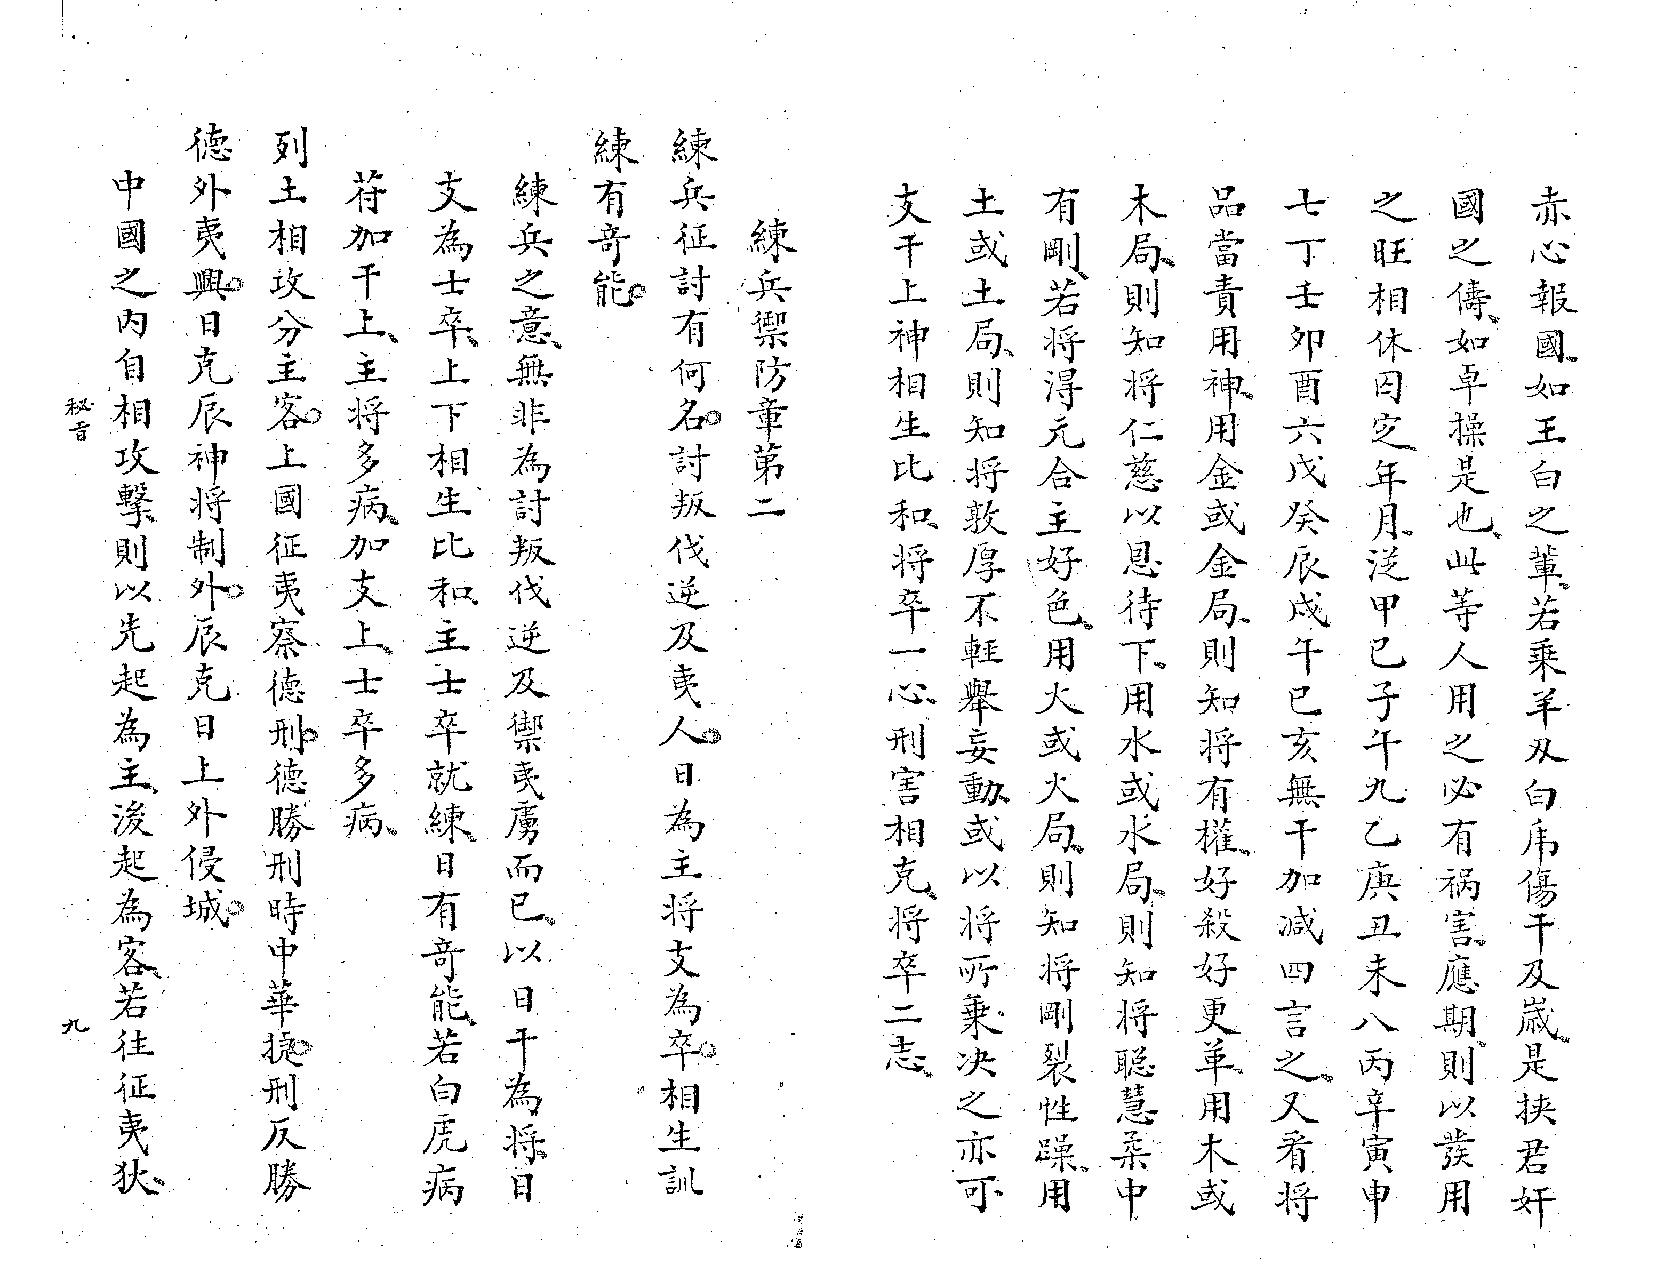 赤心報國、如王白之輩、若乘羊刃白虎傷干及歲、是挾君奸
國之儔、如卓操是也、此等人用之必有禍害、應期、則以發用
之旺相休囚定年月、從甲己子午九乙庚丑未八丙辛寅申
七丁壬卯酉六戊癸辰戌午巳亥無干加減四言之、又看將
品當責用神、用金或金局、則知將有權、好殺好更革、用木或
木局、則知將仁慈以恩待下、用水或水局、則知將聰慧柔中
有剛、若將得元合主好色、用火或火局、則知將剛裂性躁、用
土或土局、則知將敦厚不輕舉妄動、或以將所乘决之亦可
支干上神相生比和、將卒一心、刑害相克、將卒二志、
練兵禦防章第二
練兵征討有何名。討叛伐逆及夷人。日為主將支為卒。相生訓
練有奇能。
練兵之意、無非為討叛伐逆及禦夷虜而已、以日干為將、日
支為士卒、上下相生比和、主士卒就練、日有奇能、若白虎病
符加干上、主將多病、加支上、士卒多病、
列土相攻分主客。上國征夷察德刑。德勝刑時中華捷。刑反勝
德外夷興。日克辰神將制外。辰克日上外侵城。
中國之内自相攻擊、則以先起為主、後起為客、若往征夷狄、
秘旨
九